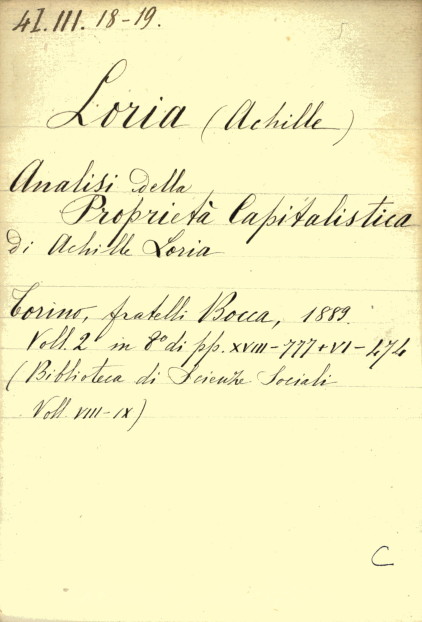 4I.III.18-19.
Loria (Achille)
Analisi della
Proprietà Capitalistica
di Achille Loria
Torino, fratelli Bocca, 1889.
Voll. 2 in 8º di pp. XVIII-777+VI-474
(Biblioteca di Scienze Sociali
Voll. VIII-IX)
C